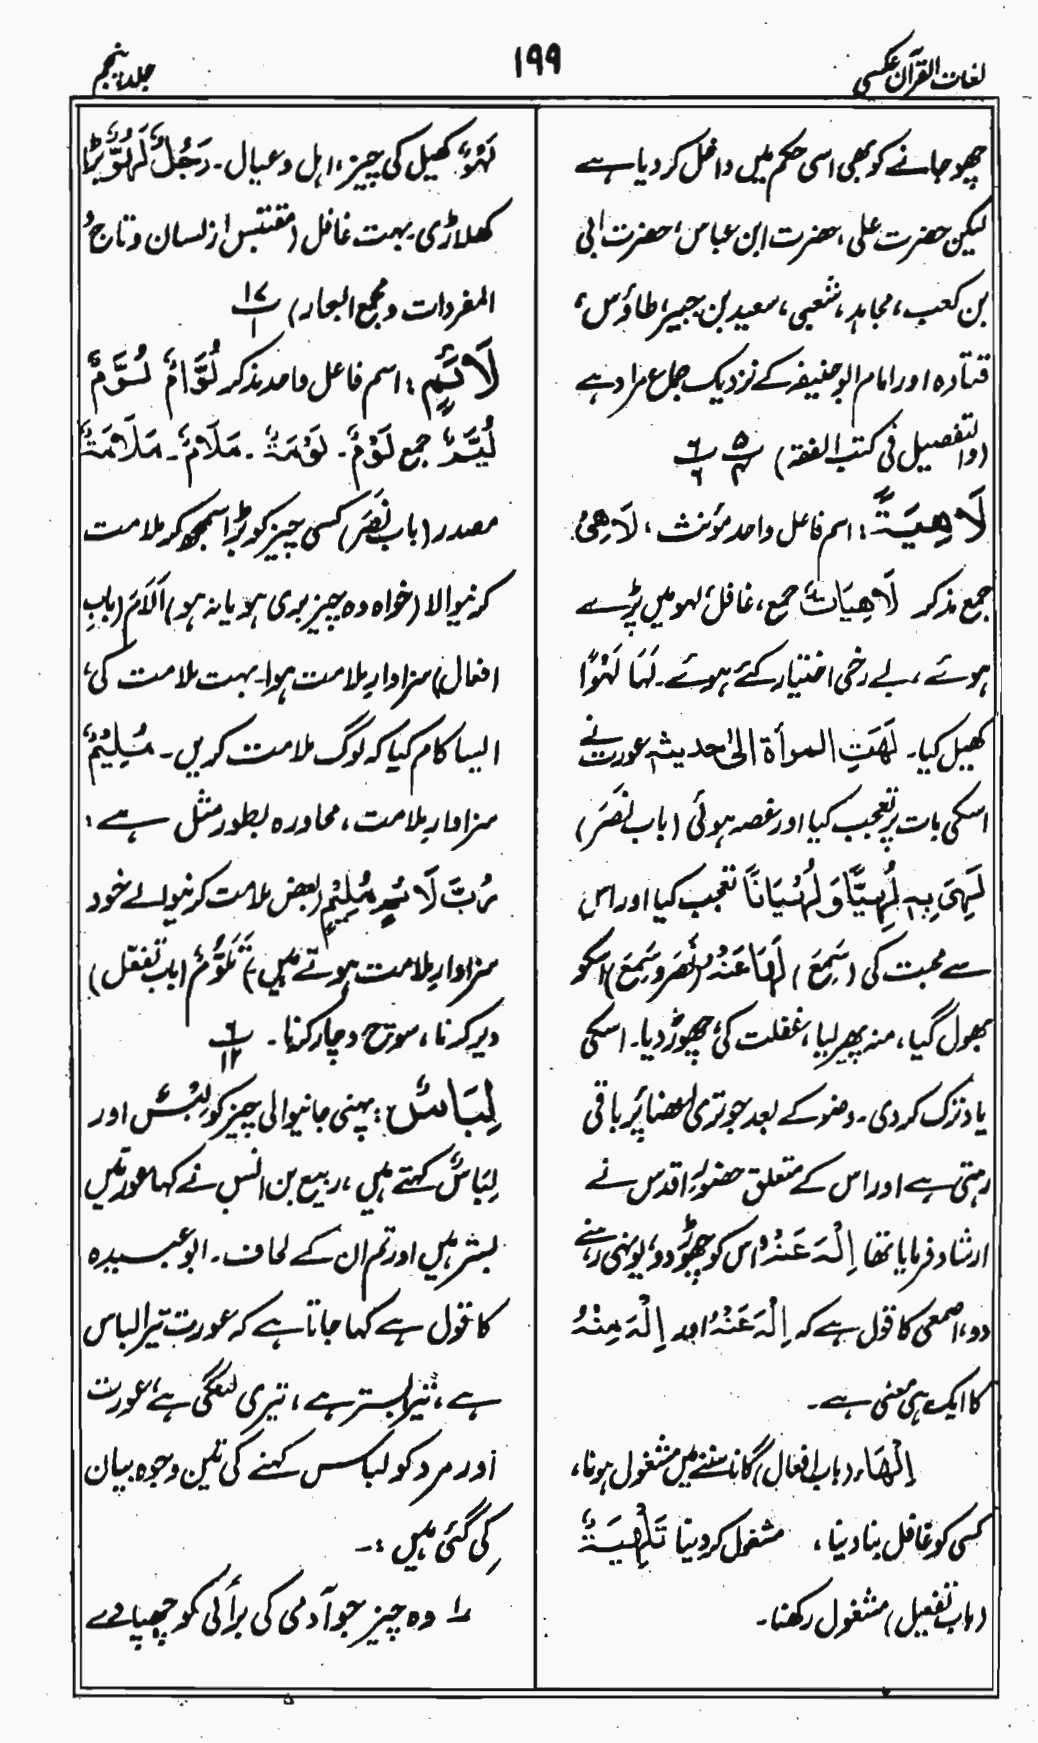 لغات القرآن عکسی
۱۹۹
جلد پنجم
چھو جانے کو بھی اسی حکم میں داخل کر دیا ہے
لیکن حضرت علی، حضرت ابن عباس، حضرت ابی
بن کعب، مجاہد، شعبی، سعید بن جبیر، طاؤس،
قتادہ اور امام ابو حنیفہ کے نزدیک جماع مراد ہے
(والتفصیل فی کتب الفقہ) پ۵/۴ پ۶/۶
لَاهِيَةً: اسم فاعل واحد مؤنث، لَاهِیٌ
جمع مذکر لَاهِيَاتٌ جمع، غافل، لہو میں پڑے
ہوئے، بے رخی اختیار کئے ہوئے۔ لَهَا لَهْوًا
کھیل کیا۔ لَهَتِ المرأة الیٰ حدیثہٖ عورت نے
اسکی بات پر تعجب کیا اور غصہ ہوئی (باب نَصَرَ)
لَهِیَ بِهٖ لُهِيًّا وَ لُهْيَانًا تعجب کیا اور اس
سے محبت کی (سَمِعَ) لَهَا عَنْهُ (نَصَرَ وسَمِعَ) اسکو
بھول گیا، منہ پھیر لیا، غفلت کی، چھوڑ دیا۔ اسکی
یاد ترک کر دی۔ وضو کے بعد جو تری اعضا پر باقی
رہتی ہے اور اس کے متعلق حضور اقدس نے
ارشاد فرمایا تھا اِلْهَ عَنْهُ اس کو چھوڑ دو، یونہی رہنے
دو، اصمعی کا قول ہے کہ اِلْهَ عَنْهُ اور اِلْهَ مِنْهُ
کا ایک ہی معنی ہے۔
اِلْهَاء (باب افعال) گانا سننے میں مشغول ہونا،
کسی کو غافل بنا دینا، مشغول کر دینا تَلْهِيَةٌ
(باب تفعیل) مشغول رکھنا۔
لَهْوٌ کھیل کی چیز، اہل و عیال۔ رَجُلٌ لَهُوٌّ بڑا
کھلاڑی بہت غافل (مقتبس از لسان و تاج و
المفردات و مجمع البحار) پ۱۷/۱
لَائِمٍ: اسم فاعل واحد مذکر لُوَّامٌ لُوَّمٌ
لُيَّمٌ جمع لَوْمٌ۔ لَوْمَةٌ۔ مَلَامٌ۔ مَلَامَةٌ
مصدر (باب نَصَرَ) کسی چیز کو بڑا سمجھ کر ملامت
کرنیوالا (خواہ وہ چیز بری ہو یا نہ ہو) اَلَامَ (باب
افعال) سزاوارِ ملامت ہوا۔ بہت ملامت کی،
ایسا کام کیا کہ لوگ ملامت کریں۔ مُلِيْمٌ
سزاوارِ ملامت، محاورہ بطور مثل ہے:
رُبَّ لَائِمٍ مُلِيْمٍ (بعض ملامت کرنیوالے خود
سزاوارِ ملامت ہوتے ہیں) تَلَوُّمٌ (باب تفعل)
دیر کرنا، سوچ و چار کرنا۔ پ۶/۱۲
لِبَاسٌ: پہنی جانیوالی چیز کو لِبْسٌ اور
لِبَاسٌ کہتے ہیں، ربیع بن انس نے کہا عورتیں
بستر ہیں اور تم ان کے لحاف۔ ابو عبیدہ
کا قول ہے کہا جاتا ہے کہ عورت تیرا لباس
ہے، تیرا بستر ہے، تیری لنگی ہے، عورت
اور مرد کو لباس کہنے کی تین وجوہ بیان
کی گئی ہیں:۔
۱ وہ چیز جو آدمی کی برائی کو چھپا دے